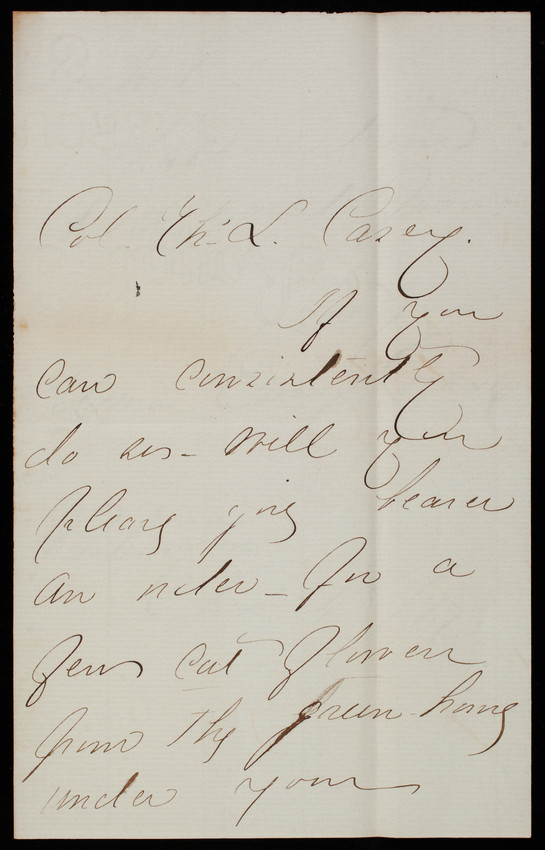 Col. Th. L. Casey.
If you
can consistently
do so - will you
please give bearer
an order - for a
few cut flowers
from the green-house
under your